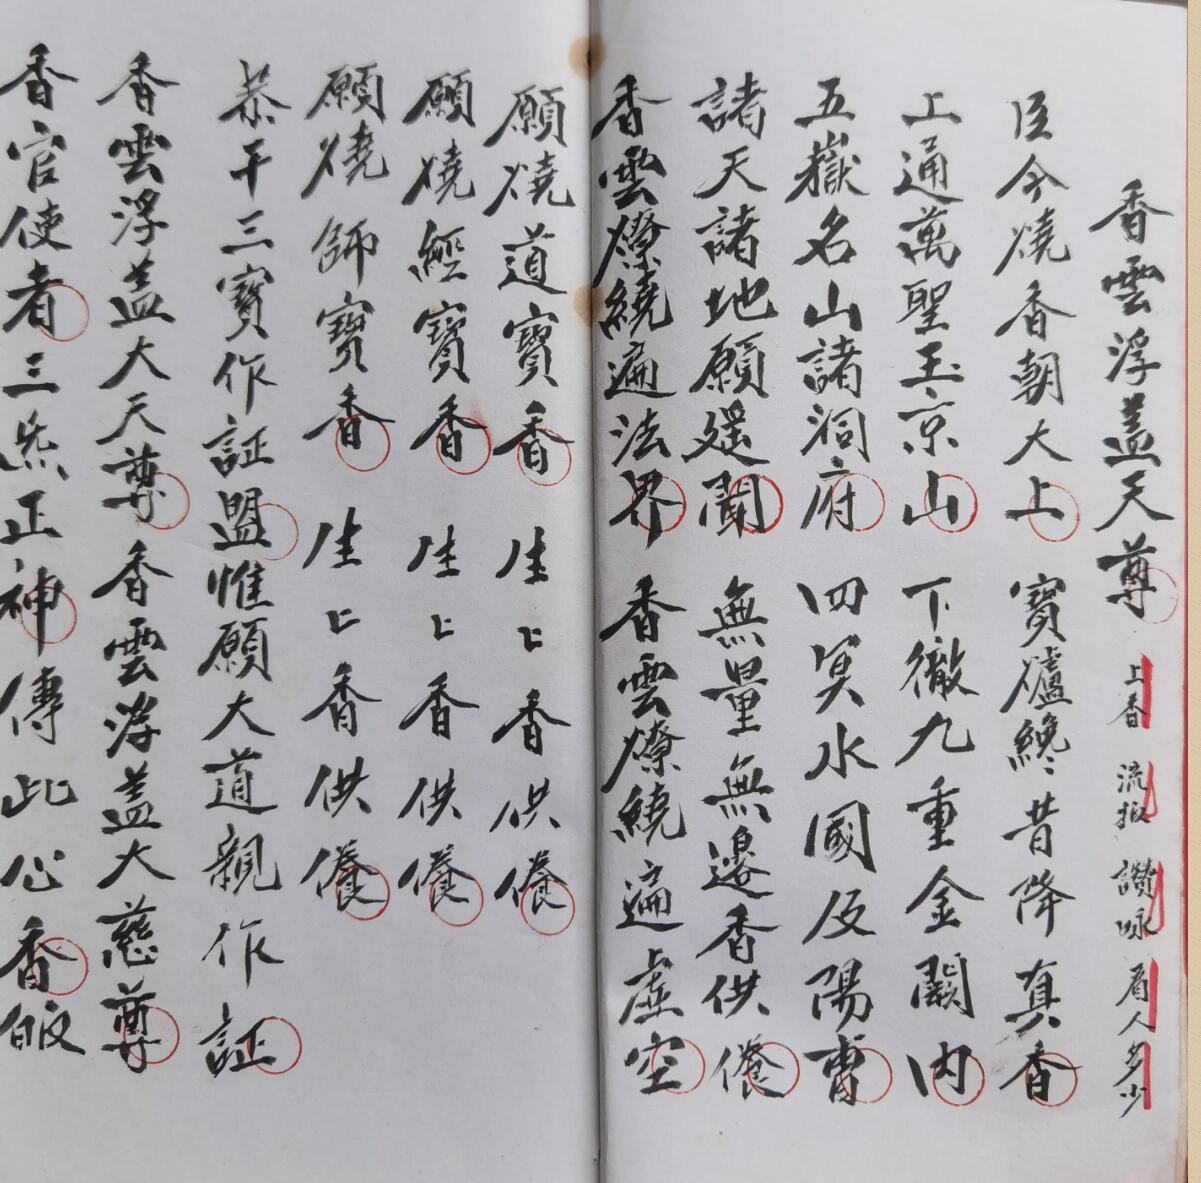 香雲浮蓋天尊 上香 流報 讚咏 看人多少
臣今燒香朝大上 寶爐纔昔降真香
上通萬聖玉京山 下徹九重金闕內
五嶽名山諸洞府 四冥水國及陽曹
諸天諸地願遥聞 無量無邊香供養
香雲燎繞遍法界 香雲燎繞遍虛空
願燒道寶香 生〻香供養
願燒經寶香 生〻香供養
願燒師寶香 生〻香供養
恭干三寶作証盟惟願大道親作証
香雲浮盖大天尊香雲浮盖大慈尊
香官使者三炁正神傳此心香皈